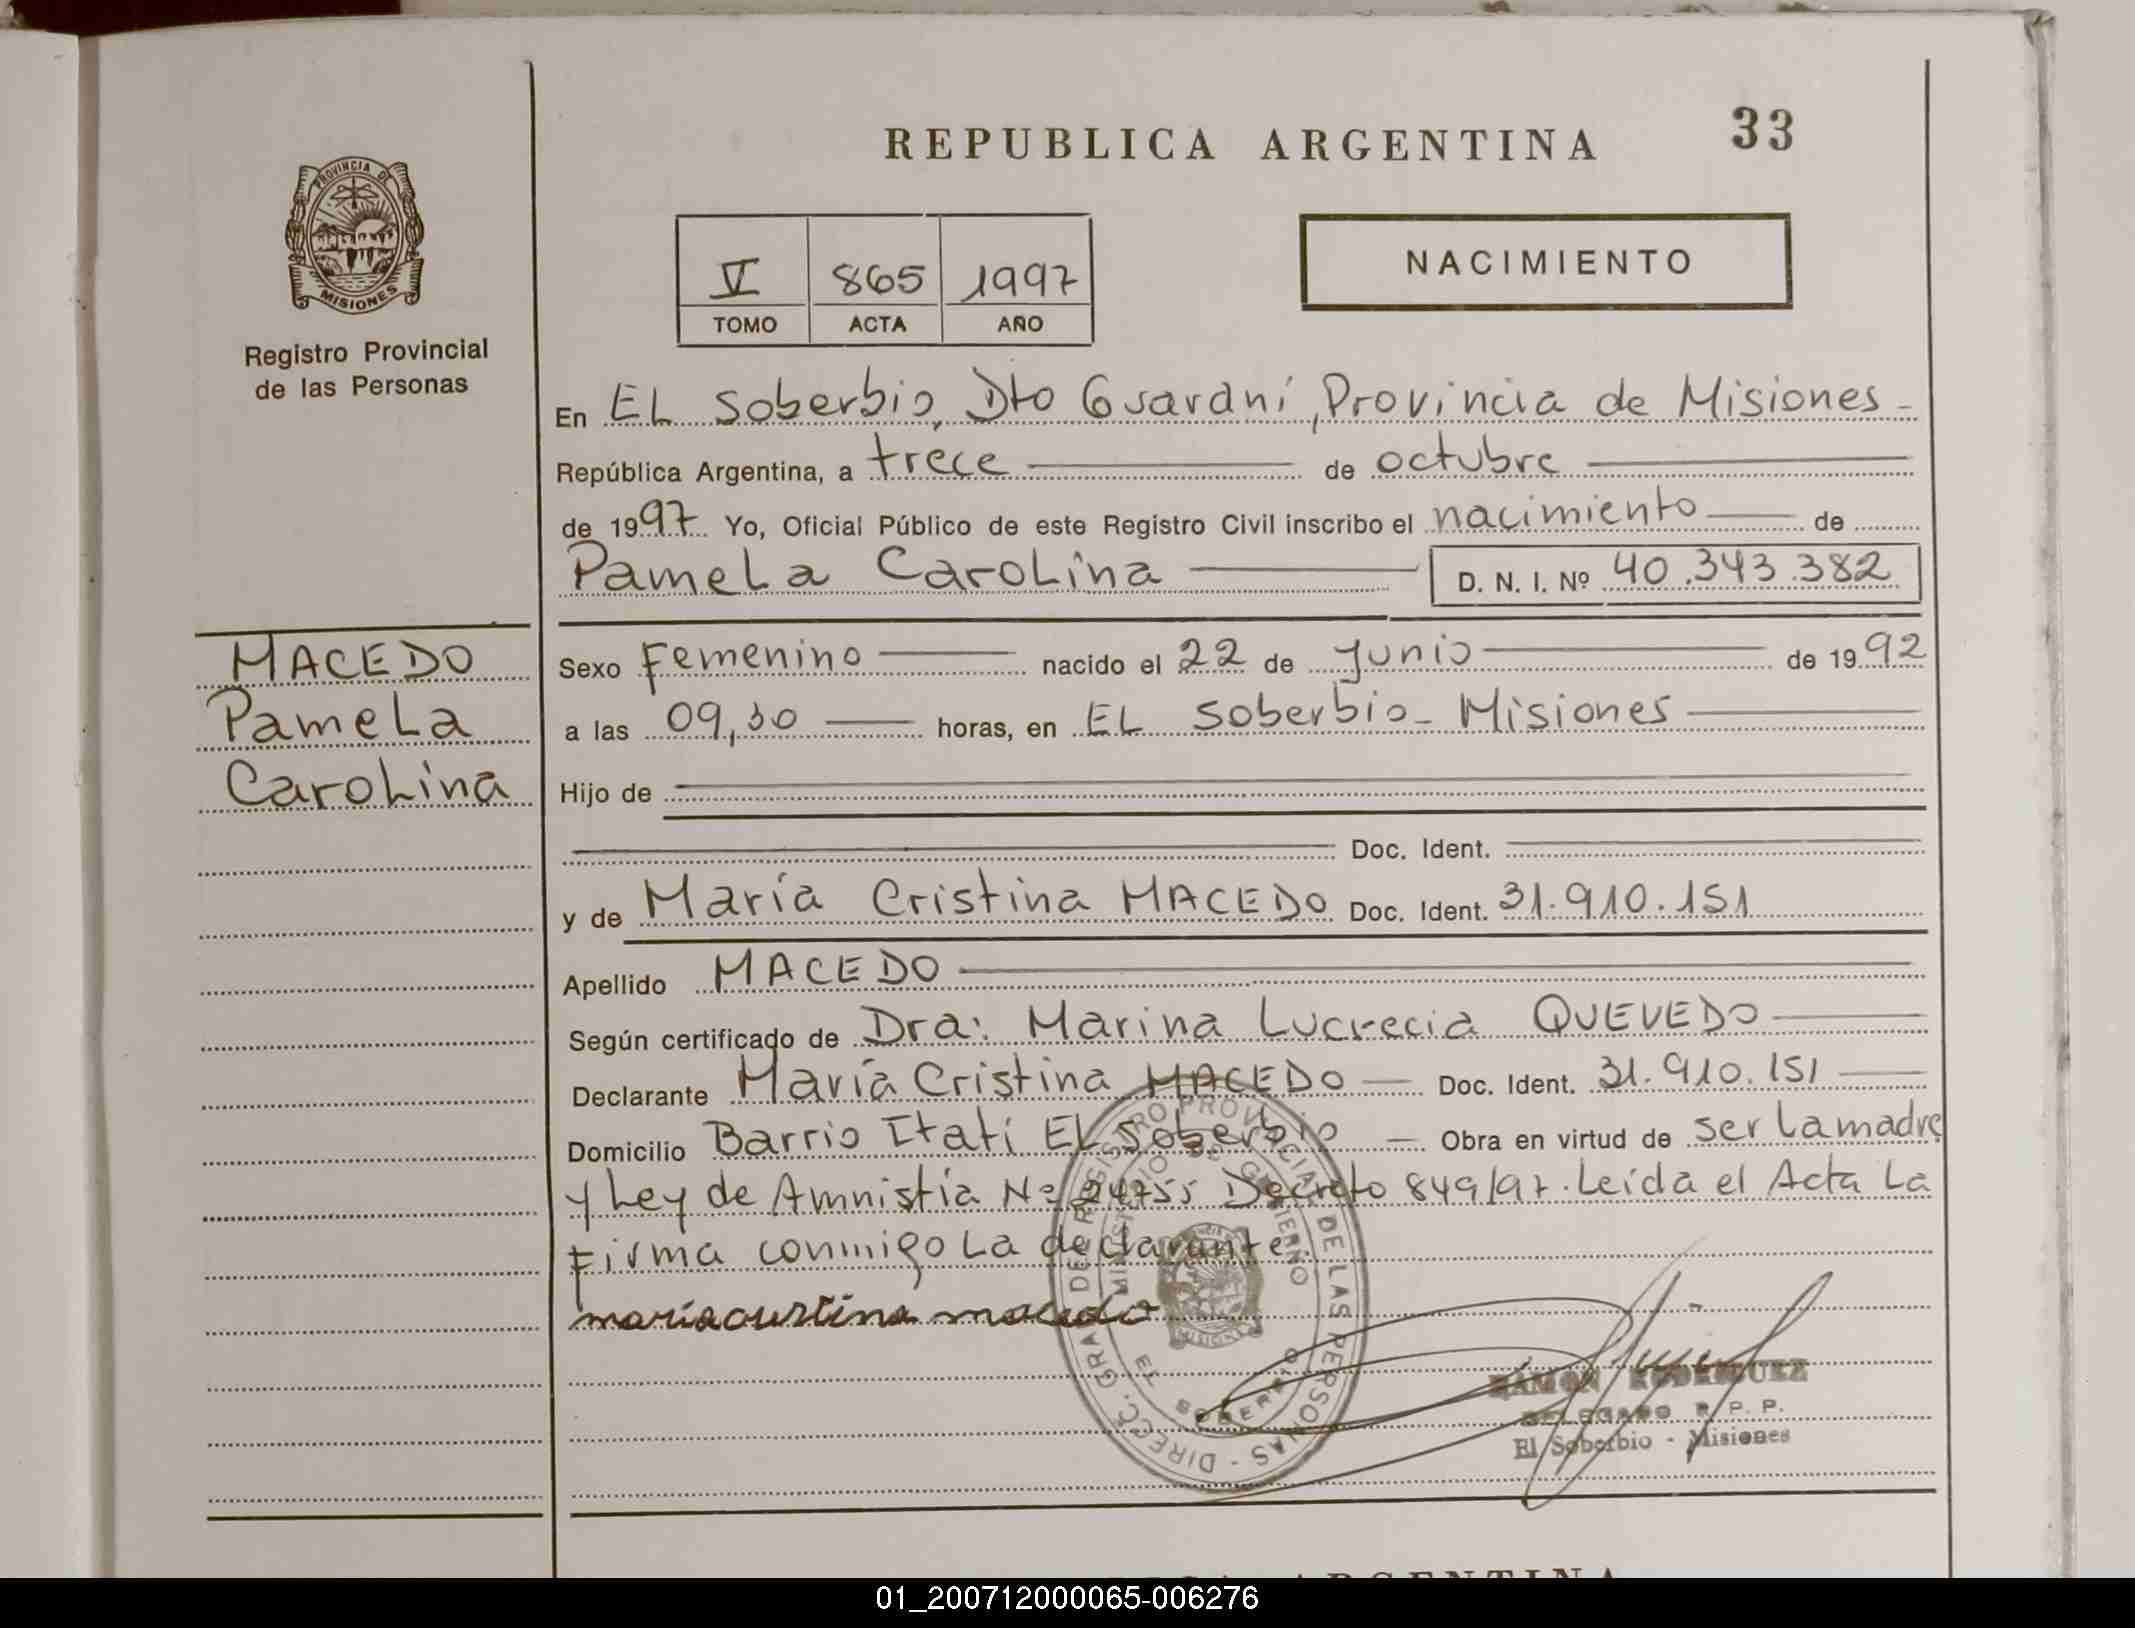 REPUBLICA ARGENTINA
33
PROVINCIA DE
MISIONES
Registro Provincial
de las Personas
V 865 1997
TOMO ACTA AÑO
NACIMIENTO
En EL Soberbio, Dto Guaraní, Provincia de Misiones -
República Argentina, a trece de octubre
de 1997 Yo, Oficial Público de este Registro Civil inscribo el nacimiento de
Pamela Carolina D. N. I. Nº 40.343.382
MACEDO
Pamela
Carolina
Sexo Femenino nacido el 22 de Junio de 1992
a las 09,30 horas, en EL Soberbio - Misiones
Hijo de
Doc. Ident.
y de María Cristina MACEDO Doc. Ident. 31.910.151
Apellido MACEDO
Según certificado de Dra: Marina Lucrecia QUEVEDO
Declarante María Cristina MACEDO Doc. Ident. 31.910.151
Domicilio Barrio Itatí EL Soberbio Obra en virtud de ser La madre
y Ley de Amnistía Nº 24755 Decreto 849/97. Leída el Acta La
Firma conmigo La declarante.
maria cristina macedo
DIRECC. GRAL. DE REGISTRO PROVINCIAL DE LAS PERSONAS -
MINISTERIO DE GOBIERNO
MISIONES
EL SOBERBIO
RAMON RODRIGUEZ
DELEGADO R. P. P.
El Soberbio - Misiones
ARGENTINA
01_200712000065-006276